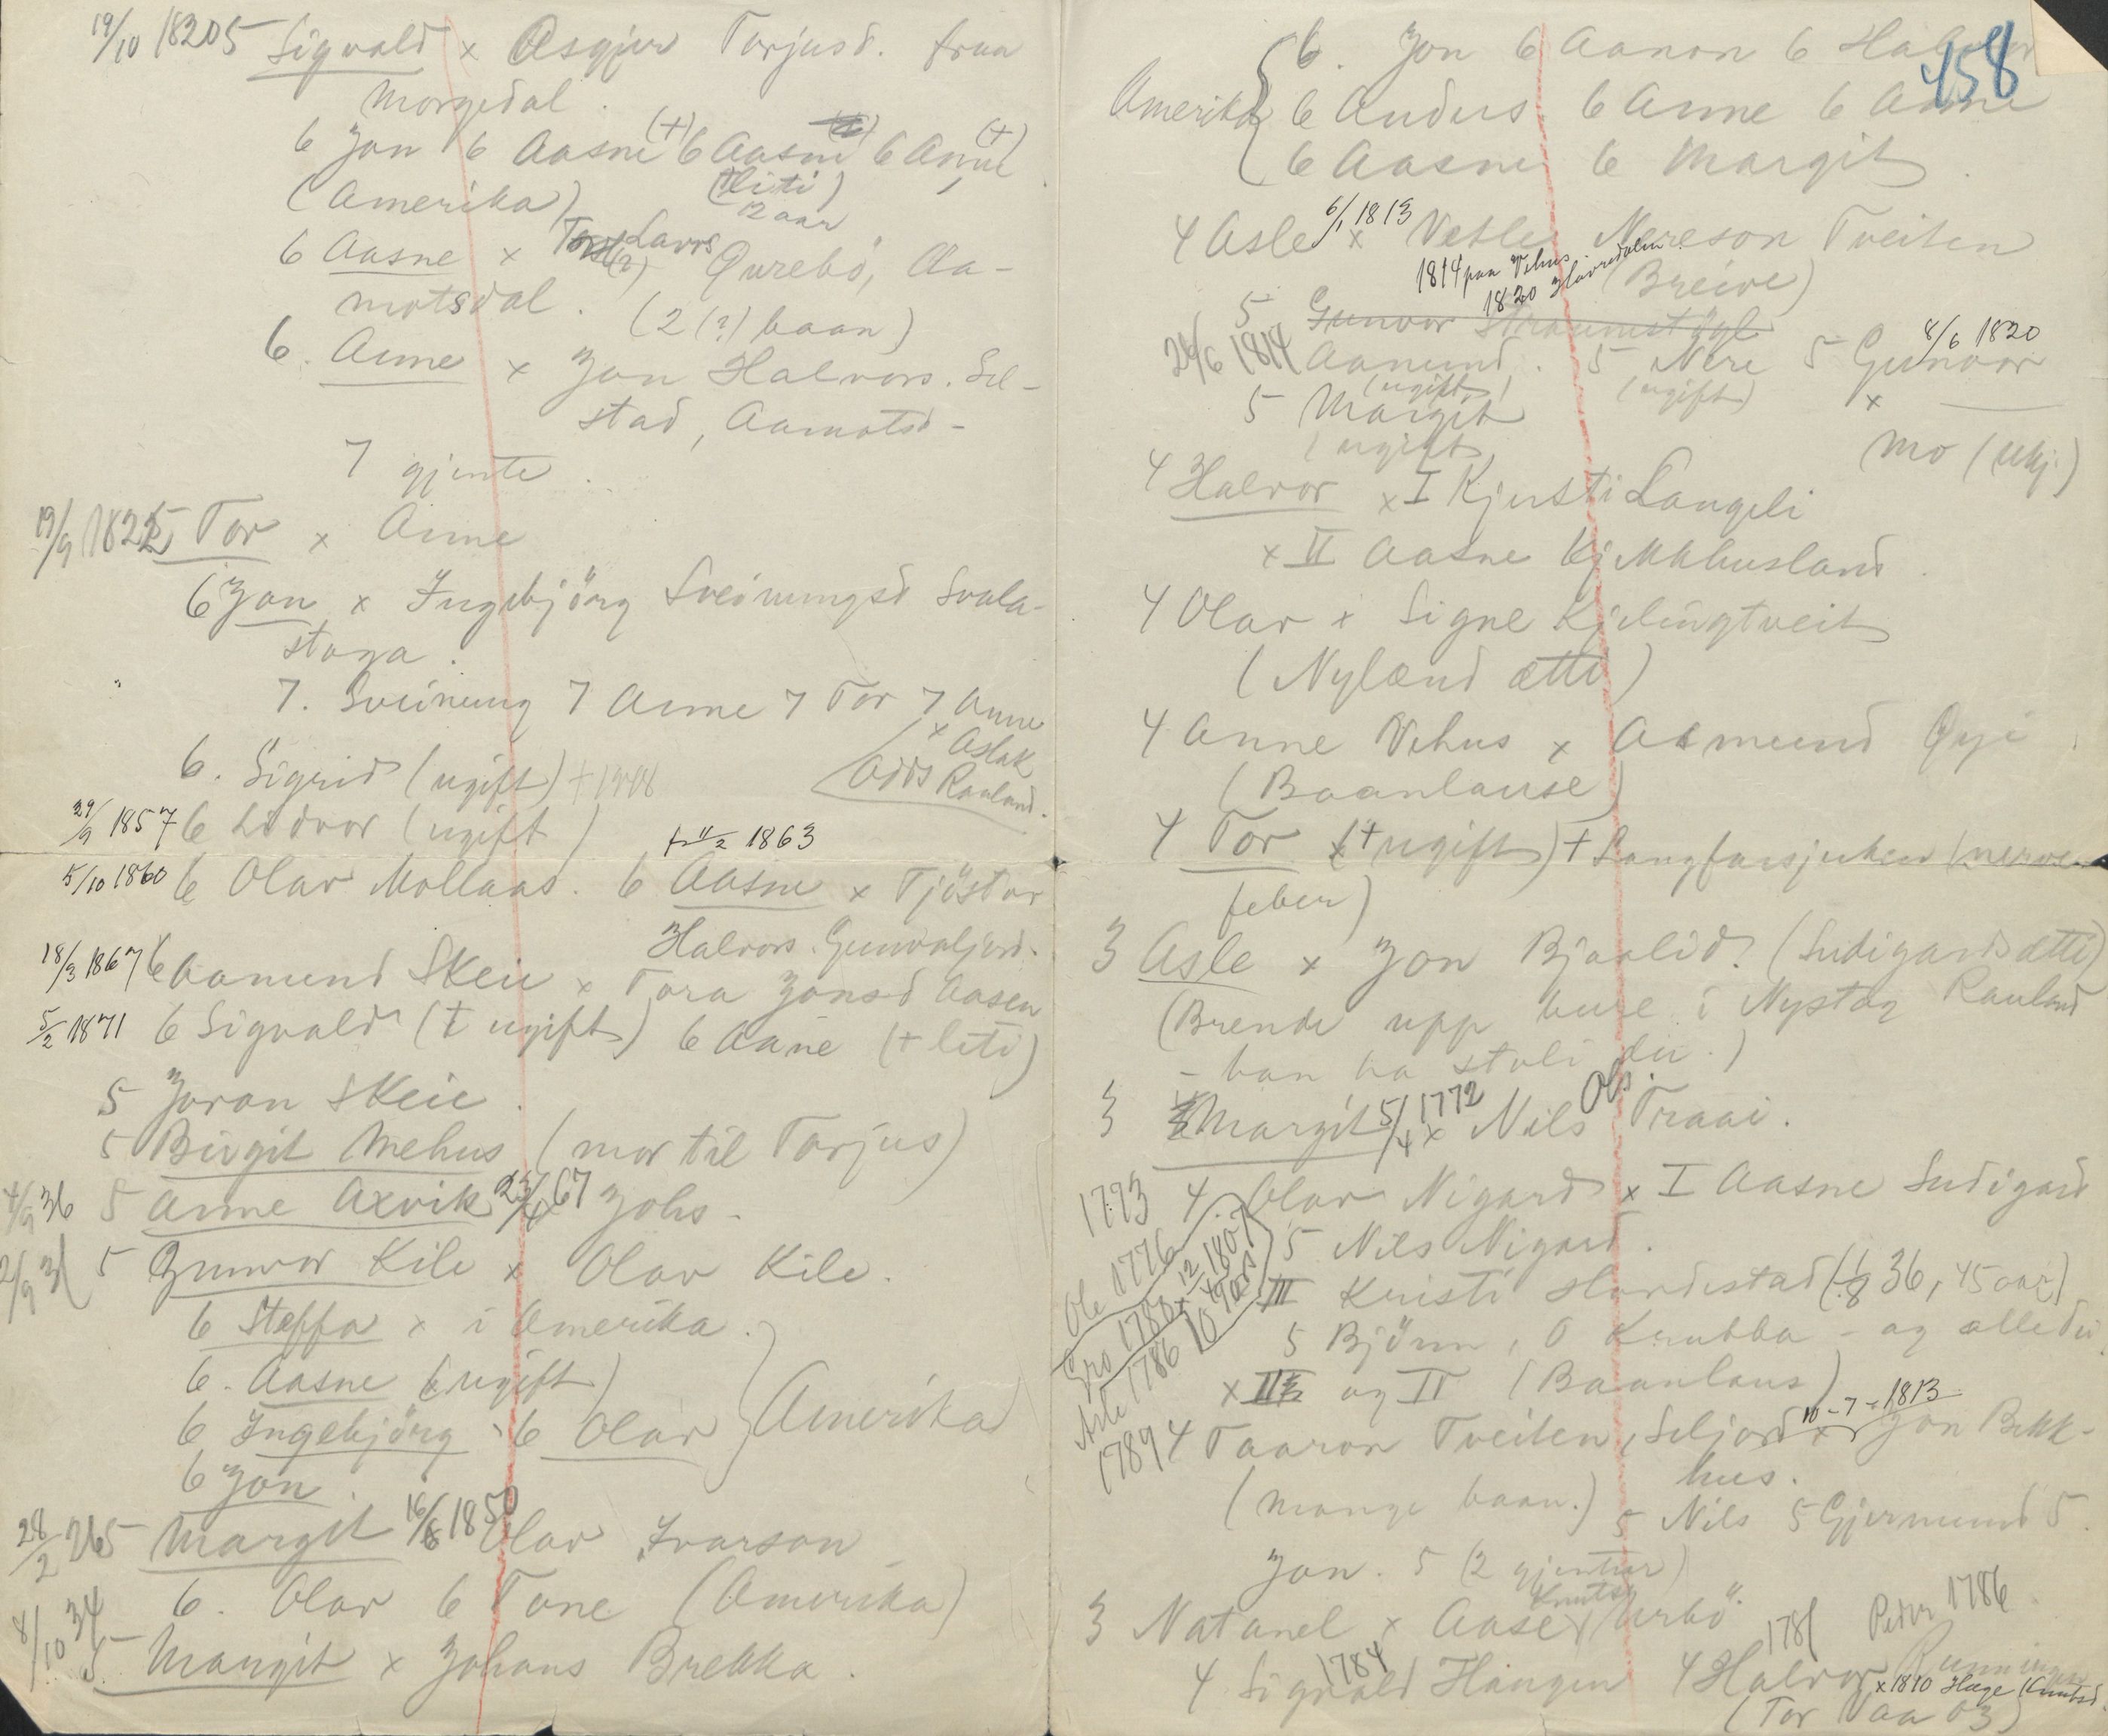 19/10 1820 5 Sigvald x Asgjer Torjusd. fraa
Morgedal.
6 Jon 6 Aasne (+) 6 Aasne 6 Anne (+)
(Amerika) (+ liti)
12 aar
6 Aasne x Lavrs Qurebö, Aa-
motsdal. (2 (?) baan)
6. Anne x Jon Halvors. Sel-
stad, Aamotsd-
7 gjente.
19/9 1822 5 Tor x Anne
6 Jon x Ingebjörg Sveinungsd Svala-
stoga.
7. Sveinung 7 Anne 7 Tor 7 Anne
x Aslak
Odds Rauland.
6. Sigrid (ugift) + 1908
29/9 1857 6 Lodvor (ugift)
+ 11/2 1863
5/10 1860 6 Olav Mollaas. 6 Aasne x Tjöstov
Halvors. Gunvaljord.
18/3 1867 6 Aamund Skeie x Tora Jonsd Aasen
5/2 1871 6 Sigvald (+ ugift) 6 Aane (+ liti)
5 Joran Skeie.
5 Birgit Mehus (mor til Torjus)
4/9 36 5 Anne Axvik 23/4 67 Johs.
2/9 31 5 Gunvor Kile x Olav Kile.
6 Steffa x i Amerika.
6. Aasne (ugift)
6 Ingebjörg 6 Olav } Amerika
6 Jon.
28/2 26 5 Margit 16/6 1850 Olav Ivarson
6. Olav 6 Tone (Amerika)
8/10 34 5. Margit x Johans Brekka.
458
6. Jon 6 Aanon 6 Halvor
Amerika { 6 Anders 6 Anne 6 Aanne
6 Aasne 6 Margit.
4 Asle 6/1 1813 x Vetle Nereson Tveiten
1814 paa Vehus (Breive)
1820
5 Gunvor
24/6 1814 Aamund. 5 Nere 5 Gunvor 4/6 1820
(ugift) (ugift) x
5 Margit
(ugift) Mo (ukj.)
4 Halvor x I Kjersti Langeli
x II Aasne Kj Mkhusland.
4 Olav x Signe Kjelingtveit
(Nyland ætti)
4 Anne Vehus x Aamund Öyi
(Baanlause)
4 Tor (+ ugift) + Langfarsjuken (nerve-
feber)
3 Asle x Jon Bjaalid. (Sudigards ætti)
(Brende upp huse i Nystog Rauland
- han ha stoli dei.)
3 Margit 5/4 1772 x Nils Ols. Traai.
1773 4. Olav Nigard x I Aasne Sudigard
Ole 1776
5 Nils Nigard.
Gro 1780 + 12/4 1807
III Kristi Hardestad (1/8 36, 45 aar)
5 Björn, O Krubba - og alle dei
Asle 1786
x III og II (Baanlaus)
1789 4 Taaron Tveiten, Seljord 10-7-1813 x Jon Bekk-
hus.
(mange baan.) 5 Nils 5 Gjermund 5.
Jon. 5 (2 gjentur)
3 Natanel x Aase Knutsd Urbö.
1781 Peder 1786
4 Sigvald 1784 Haugen 4 Halvor
x 1810 Hæge Knutsd.
(Tor Vaa 03)